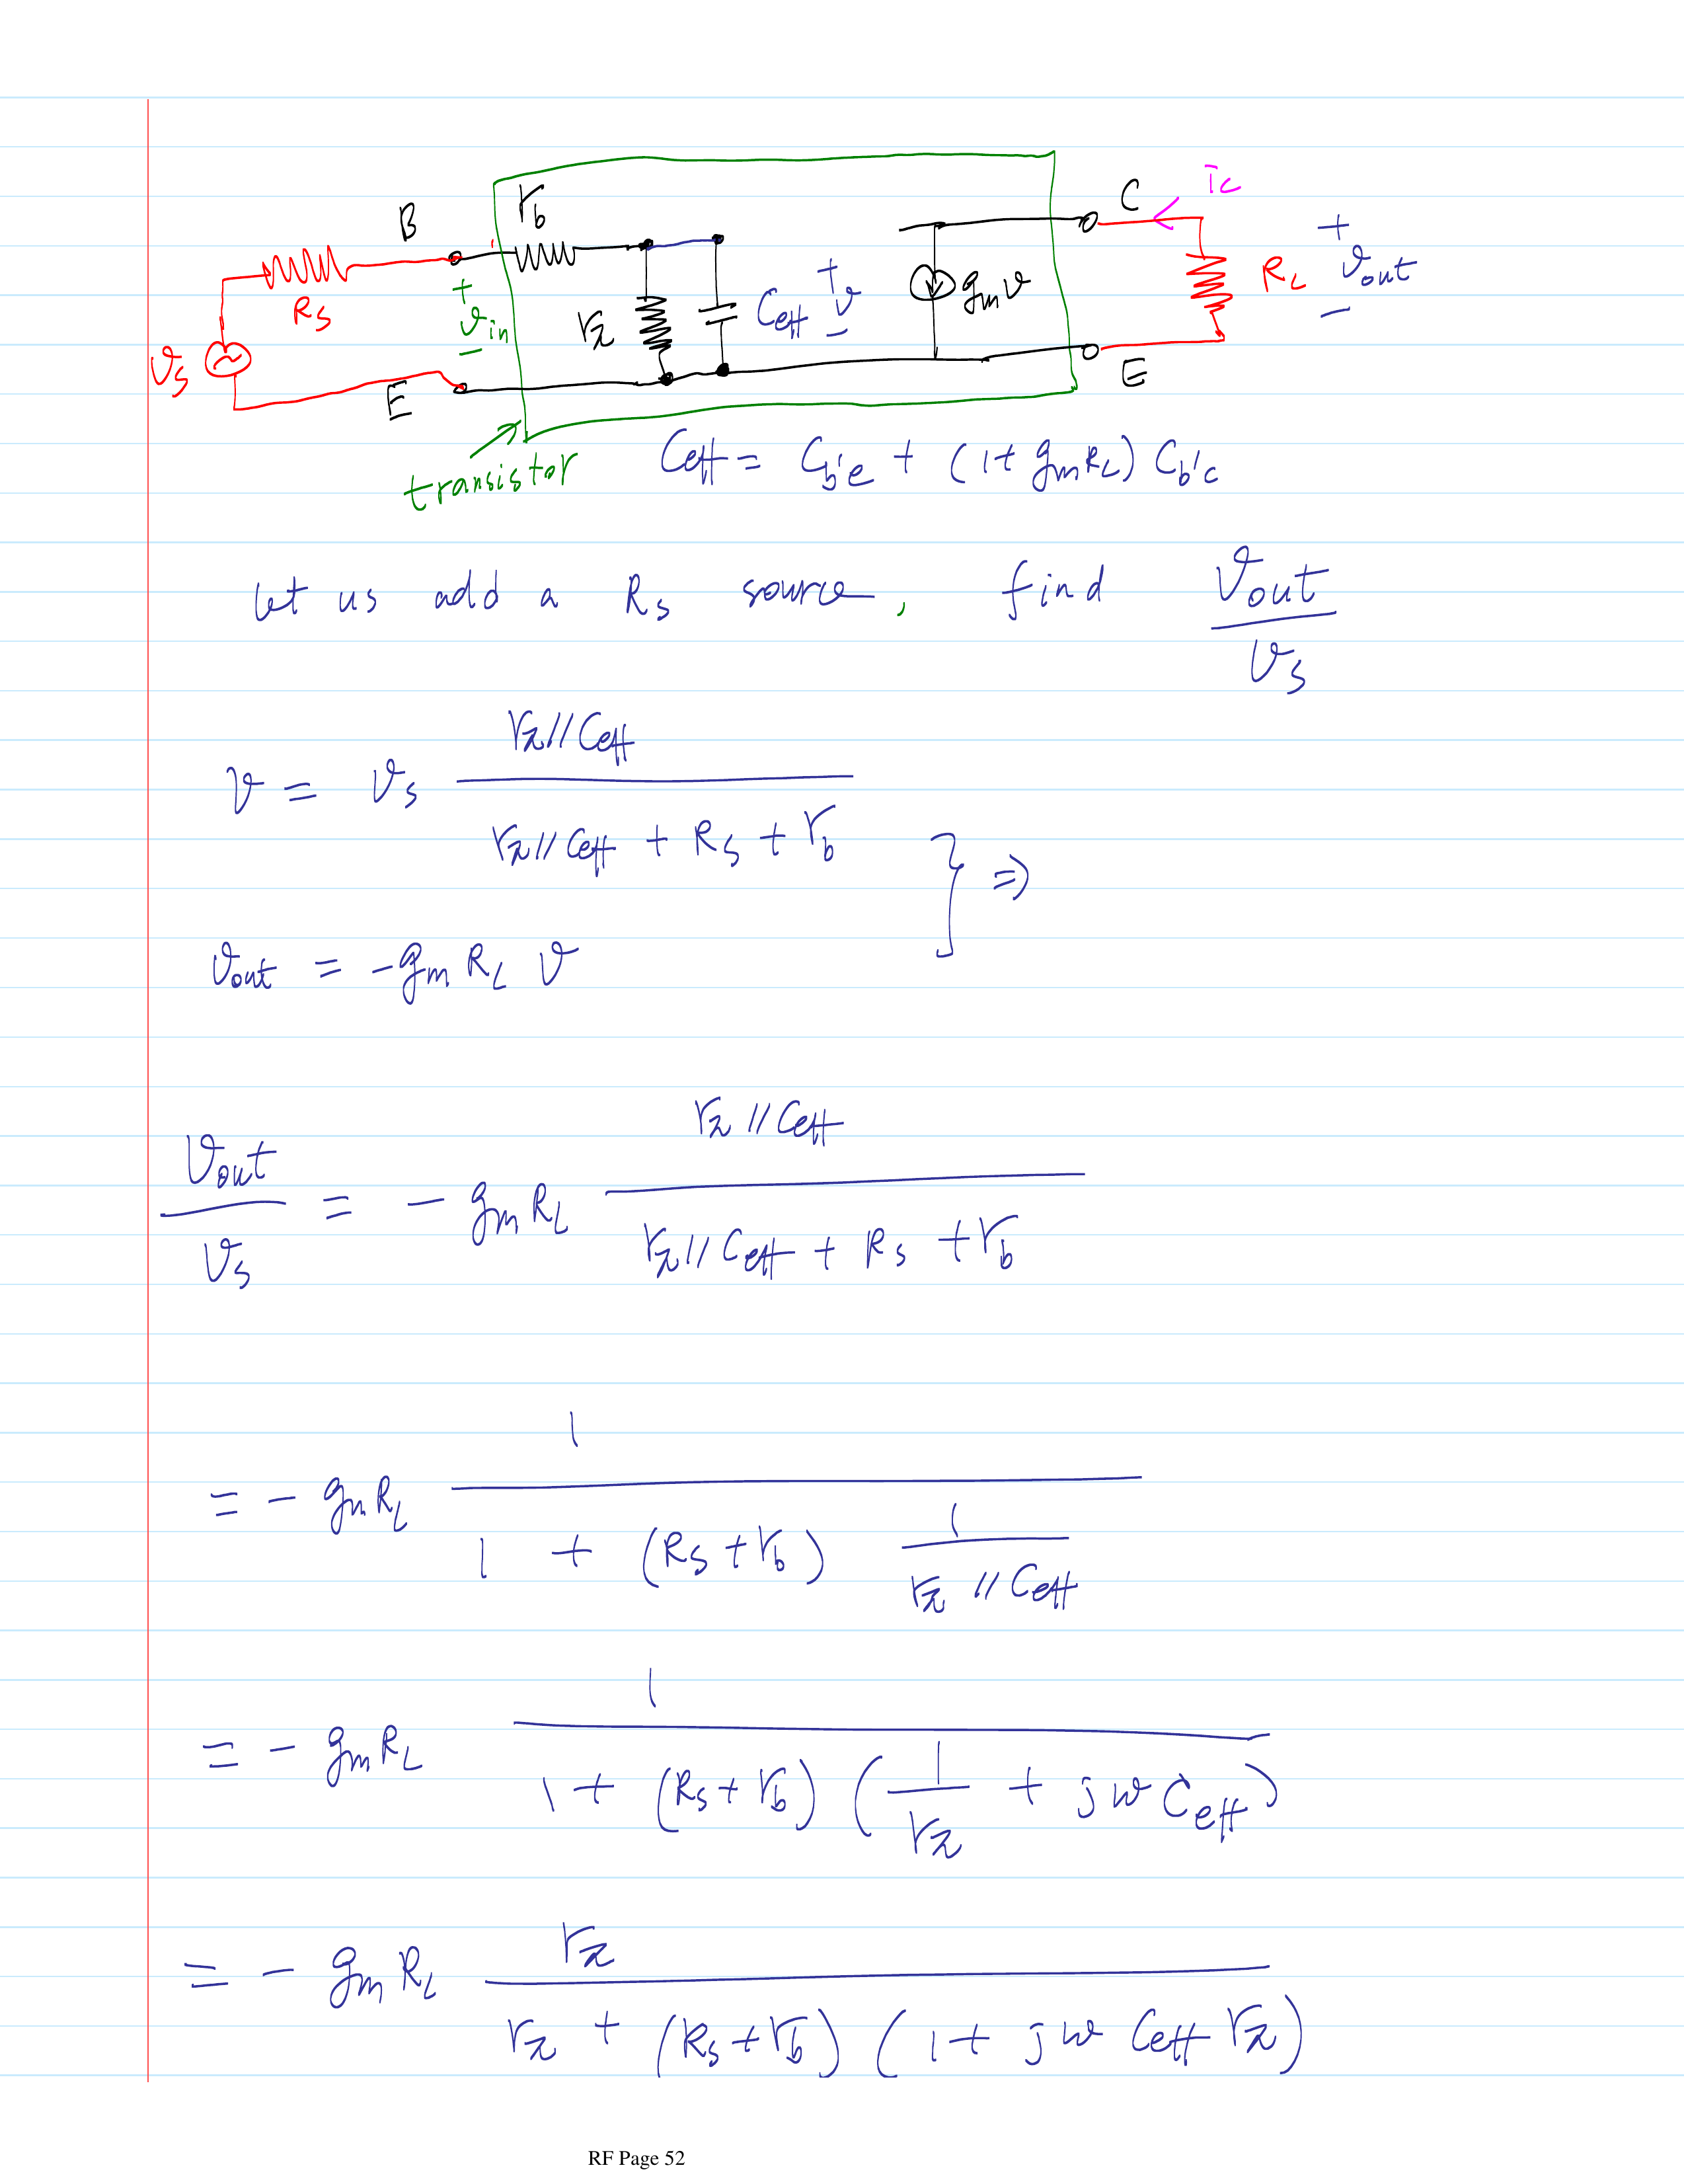 B r_b C i_c
R_s + v_in − r_π C_eff + v − g_m v R_L + v_out −
v_s E E
transistor C_eff = C_b'e + (1 + g_m R_L) C_b'c
let us add a R_s source, find v_out / v_s
v = v_s (r_π // C_eff) / (r_π // C_eff + R_s + r_b)
} ⇒
v_out = -g_m R_L v
v_out / v_s = - g_m R_L (r_π // C_eff) / (r_π // C_eff + R_s + r_b)
= - g_m R_L 1 / (1 + (R_s + r_b) 1 / (r_π // C_eff))
= - g_m R_L 1 / (1 + (R_s + r_b) (1 / r_π + jω C_eff))
= - g_m R_L r_π / (r_π + (R_s + r_b) (1 + jω C_eff r_π))
RF Page 52